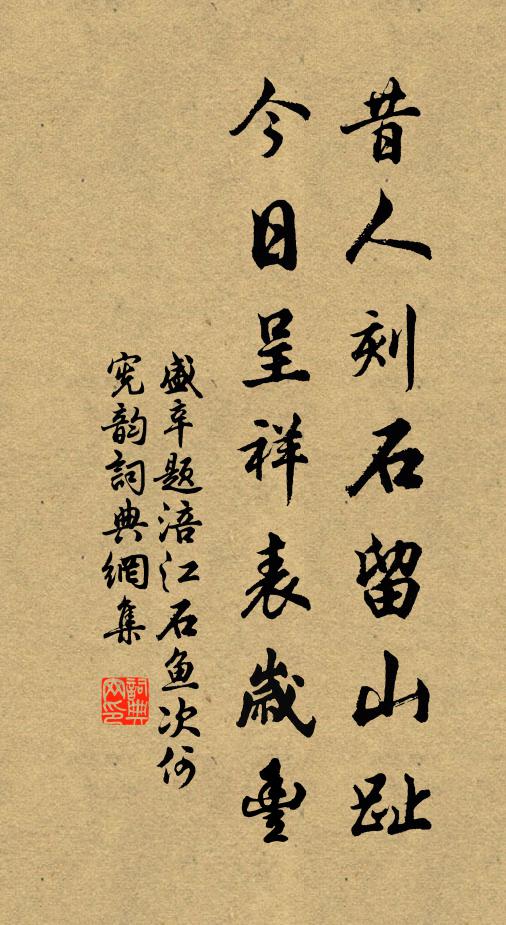 昔人刻石留山趾
今日呈祥表歲豐
盛辛题涪江石鱼次何
宪韵詞典網集
詞典网印